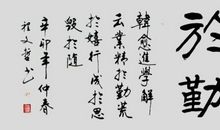 於勤
韓愈進學解
云業精於勤荒
於嬉行成於思
毀於隨
辛卯年仲春
文哲书